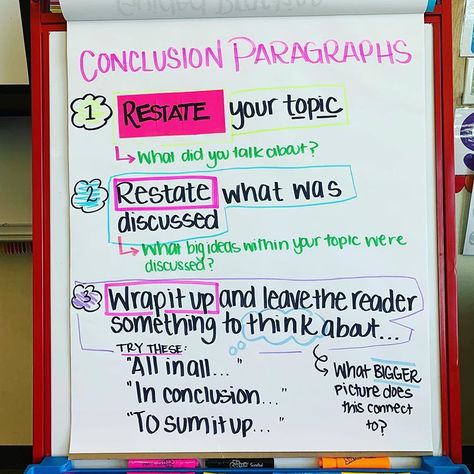 CONCLUSION PARAGRAPHS
1 RESTATE your topic
↳ What did you talk about?
2 Restate what was
discussed
↳ What big ideas within your topic were
discussed?
3 Wrap it up and leave the reader
something to think about...
TRY THESE:
"All in all..."
"In conclusion..."
"To sum it up..."
What BIGGER
Picture does
this connect
to?